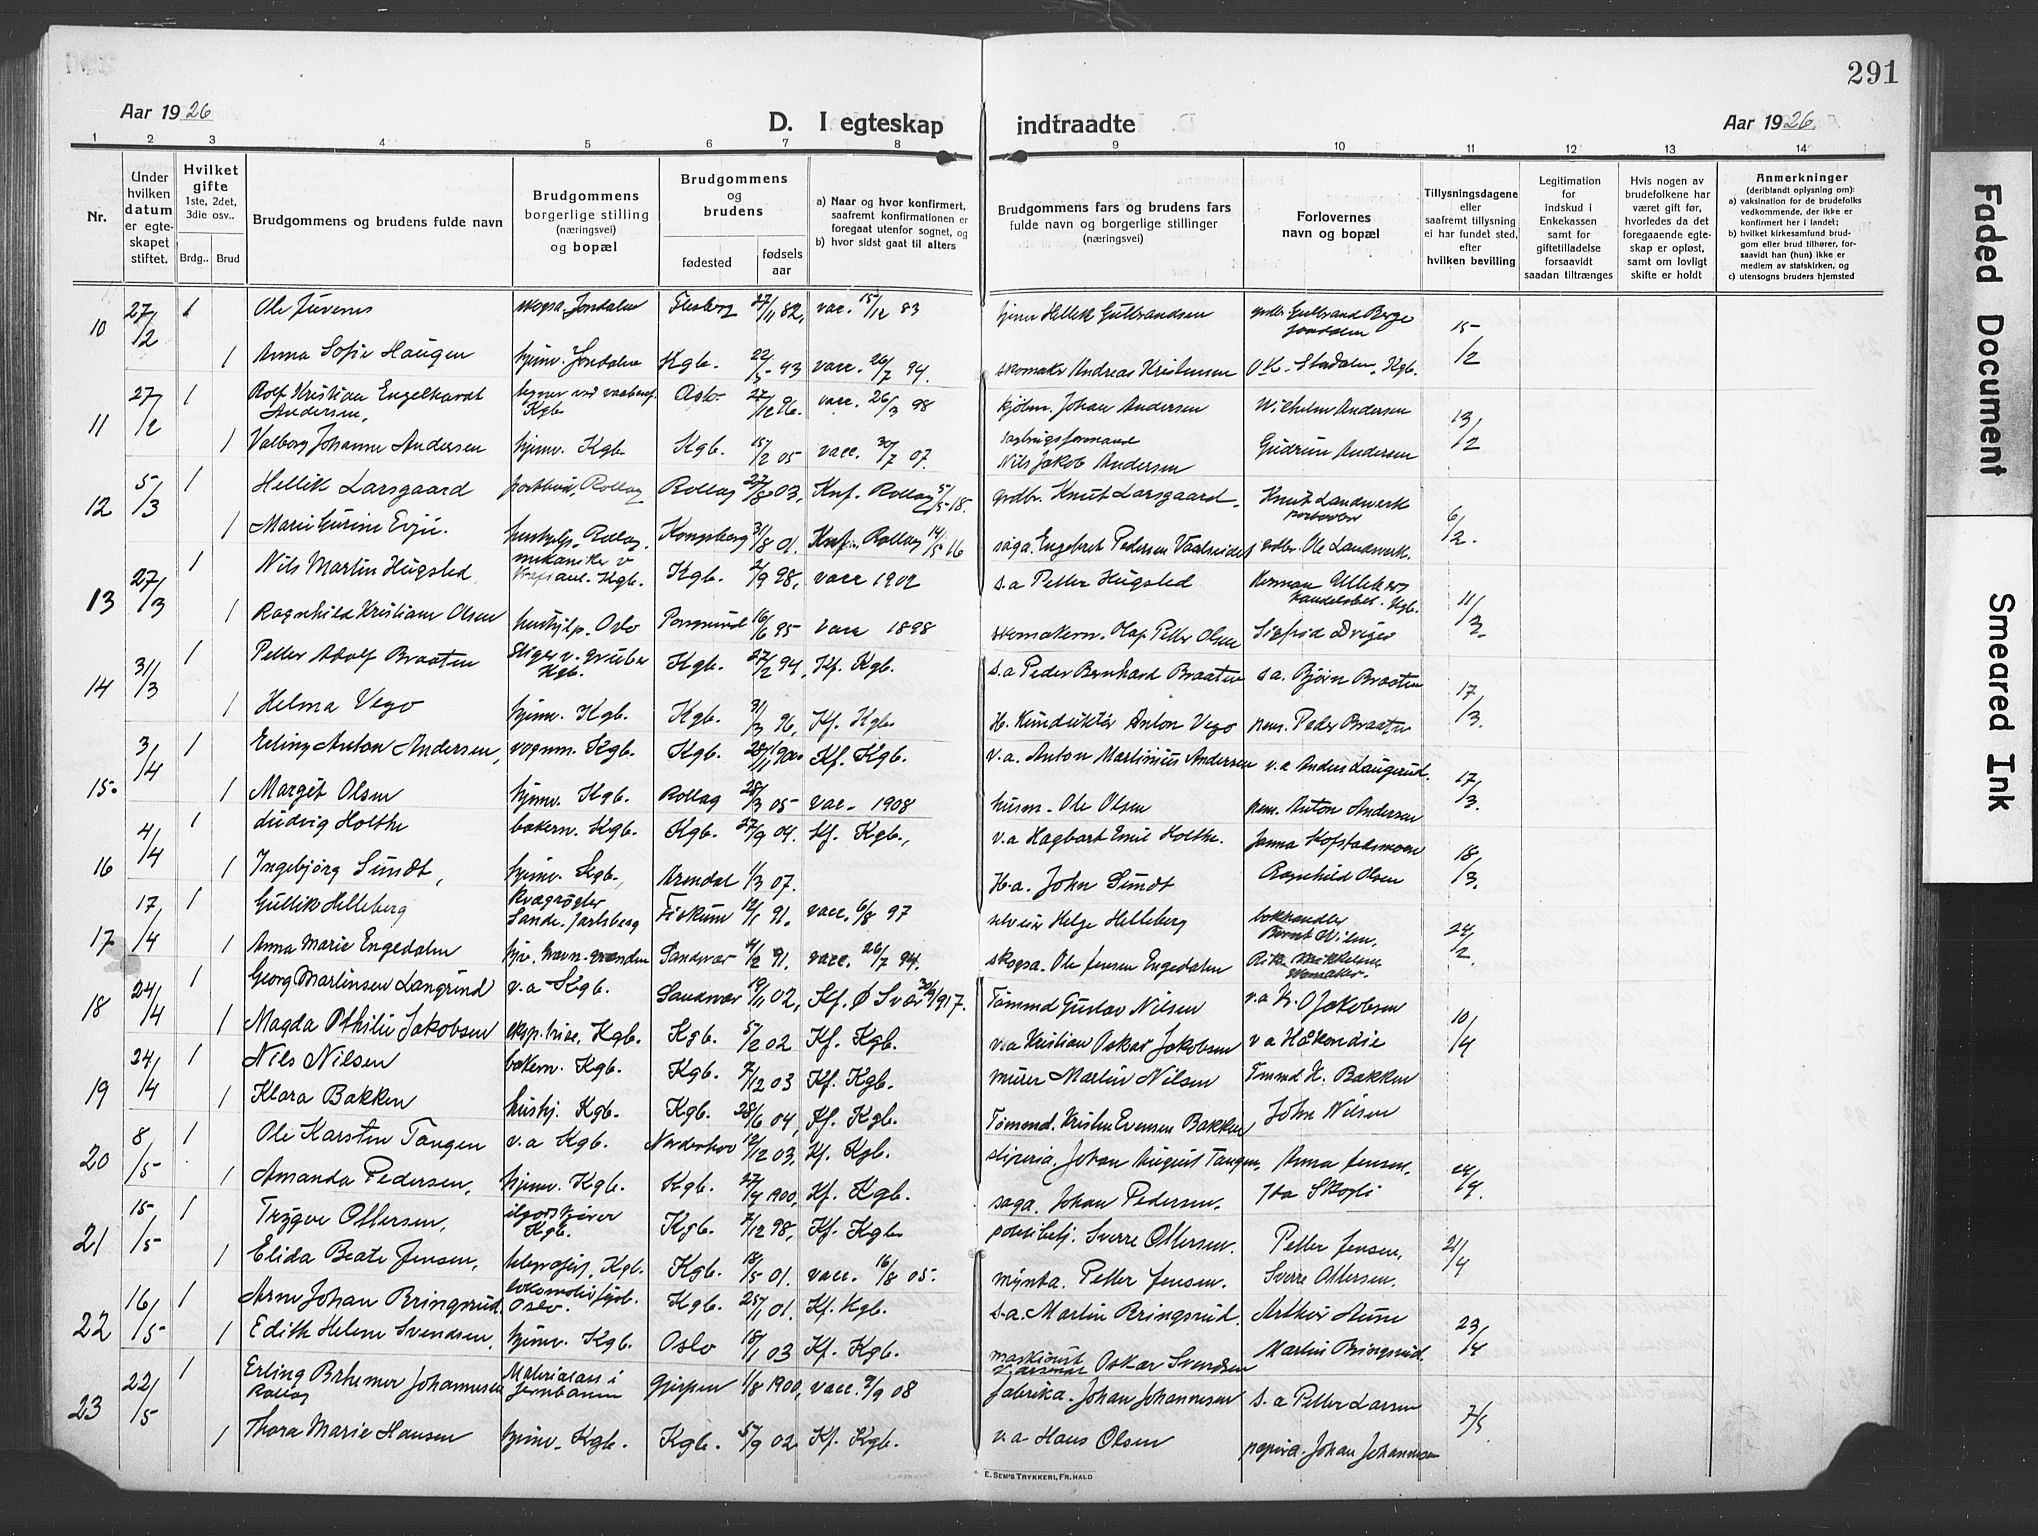 291
Aar 1926
D. I egteskap indtraadte
Aar 1926.
1 2 3 4 5 6 7 8 9 10 11 12 13 14
Nr.
Under hvilken datum er egteskapet stiftet.
Hvilket gifte
1ste, 2det, 3die osv..
Brdg.. Brud
Brudgommens og brudens fulde navn
Brudgommens borgerlige stilling (næringsvei) og bopæl
Brudgommens og brudens
fødested
fødselsaar
a) Naar og hvor konfirmert, saafremt konfirmationen er foregaat utenfor sognet, og
b) hvor sidst gaat til alters
Brudgommens fars og brudens fars fulde navn og borgerlige stillinger (næringsvei)
Forlovernes navn og bopæl
Tillysningsdagene eller saafremt tillysning ei har fundet sted, efter hvilken bevilling
Legitimation for indskud i Enkekassen samt for giftetilladelse forsaavidt saadan tiltrænges
Hvis nogen av brudefolkene har været gift før, hvorledes da det foregaaende egteskap er opløst, samt om lovligt skifte er holdt
Anmerkninger
(deriblandt oplysning om):
a) vaksination for de brudefolks vedkommende, der ikke er konfirmert her i landet;
b) hvilket kirkesamfund brudgom eller brud tilhører, forsaavidt han (hun) ikke er medlem av statskirken, og
c) utensogns bruders hjemsted
10 27/2 1 Ole Juvenes skogsa. Jondalen Flesberg 27/11 82, vac. 15/12 83 Hellik Gulbrandsen grdbr. Gulbrand Berge Jondalen 15/2
1 Anna Sofie Haugen hjemv. Jondalen Kgb. 93 vacc. 26/7 94. skomaker Andreas Kristensen Kgb.
11 27/2 1 Rolf Kristian Engelhardt Andersen, Kgb. 27/12 96. vacc. 26/3 98 Johan Andersen Wilhelm Andersen 13/2
1 Valborg Johanne Andersen hjemv. Kgb. Kgb. 15/2 05 vacc. 30/7 07. Nils Jakob Andersen Gudrun Andersen
12 5/3 1 Hellik Larsgaard postbud, Rollag Rollag 27/8 03, Knf. Rollag 5/5-18. grdbr. Knut Larsgaard. Knut Landwerk 6/2.
1 Marie Gurine Evju. hushjelp. Rollag. Kongsberg 31/8 01. Knf. Rollag 14/5 16 saga. Engebret Pedersen grdbr. Ole Landwerk.
13 27/3 1 Nils Martin Hugsted mekaniker v Kgb. Kgb. 2/9 98, vacc 1902 s.a Petter Hugsted Herman Ulleberg Kgb. 11/3
1 Ragnhild Kristiane Olsen hushjelp. Oslo 16/6 95 vacc 1898 skomakerm. Olaf Petter Olsen Sigfrid
14 31/3 1 Petter Adolf Braaten Stiger v. gruber Kgb. Kgb. 27/2 94, Kf. Kgb. s.a Peder Bernhard Braaten s a. Bjørn Braaten 17/3.
1 Helma Vego hjemv. Kgb. Kgb. 31/3 96, Kf. Kgb. Anton Vego pens. Peder Braaten
15. 3/4 1 Erling Anton Andersen, vognm. Kgb. Kgb. 28/11 1900 Kf. Kgb. v.a. Anton Martinius Andersen v.a Anders Laugerud. 17/3.
1 Margit Olsen hjemv. Kgb. Rollag 28/3 05- vac. 1908 husm. Ole Olsen pens. Anton Andersen
16 4/4 1 Ludvig Holthe bakerm. Kgb. Kgb. 27/9 04. Kf. Kgb., v.a Hagbart Emil Holthe. Janna Hofstadmoen 18/3.
1 Ingebjørg Sundt, hjemv. Kgb., Arendal 1/3 07. H.a. John Sundt Ragnhild Olsen
17 17/4 1 Gullik Helleberg Kvægrøgter Sande. Jarlsberg Fiskum 12/1 91. vacc. 6/8 97 selveier Helge Helleberg bokhandler 24/2.
1 Anna Marie Engedalen Sandsvær 4/2 91. vacc. 26/7 94. skogsa. Ole Jensen Engedalen
18 24/4 1 Georg Martinsen Langrind v.a Kgb. Sandsvær 19/11 02, Kf. Ø Svær 30/9 1917. Tømmd Gustav Nilsen v.a K. O Jakobsen 10/4
1 Magda Othilie Jakobsen Kgb. Kgb. 5/2 02 Kf. Kgb. v.a Kristian Oskar Jakobsen v a
19 24/4 1 Nils Nilsen bakerm. Kgb. Kgb. 7/12 03 Kf. Kgb. murer Martin Nilsen Tmmd K. Bakken
1 Klara Bakken hushj. Kgb. Kgb. 28/6 04, Kf. Kgb. Tømmd. Kristen Evensen Bakken John Nilsen
20 8/5 1 Ole Karsten Tangen v.a Kgb. Norderhov 19/12 03, Kf. Kgb. sliperia. Johan August Tangen, Anna Jensen. 24/4.
1 Amanda Pedersen, hjemv. Kgb. Kgb. 27/4 1900, Kf. Kgb. saga. Johan Pedersen. Ida Skogli
21 15/5 1 Trygve Ottersen, Kgb. Kgb. 7/12 98, Kf. Kgb. politibetj. Sverre Ottersen. Petter Jensen. 21/4
1 Elida Beate Jensen, Kgb. Kgb. 18/5 01. vacc. 16/8 05. mynta. Petter Jensen. Sverre Ottersen.
22 16/5 1 Arne Johan Bringsrud Oslo. Kgb. 25/1 01. Kf. Kgb. s.a. Martin Bringsrud. Arthur Aune 23/4
1 Edith Helene Svendsen, hjemv. Kgb. Oslo 18/1 03 Kf. Kgb. maskinist Oskar Svendsen Martin Bringsrud.
23 22/5 1 Erling Johannesen Rollag Materialass i Jernbanen Gjerpen 1/8 1900, vacc. 9/9 08 fabrika. Johan Johannesen s. a Petter Larsen 7/5
1 Thora Marie Hansen hjemv. Kgb. Kgb. 5/9 02 Kf. Kgb. v.a Hans Olsen papira. Johan Johannesen
E. SEM'S TRYKKERI, FR.HALD
Faded Document
Smeared Ink